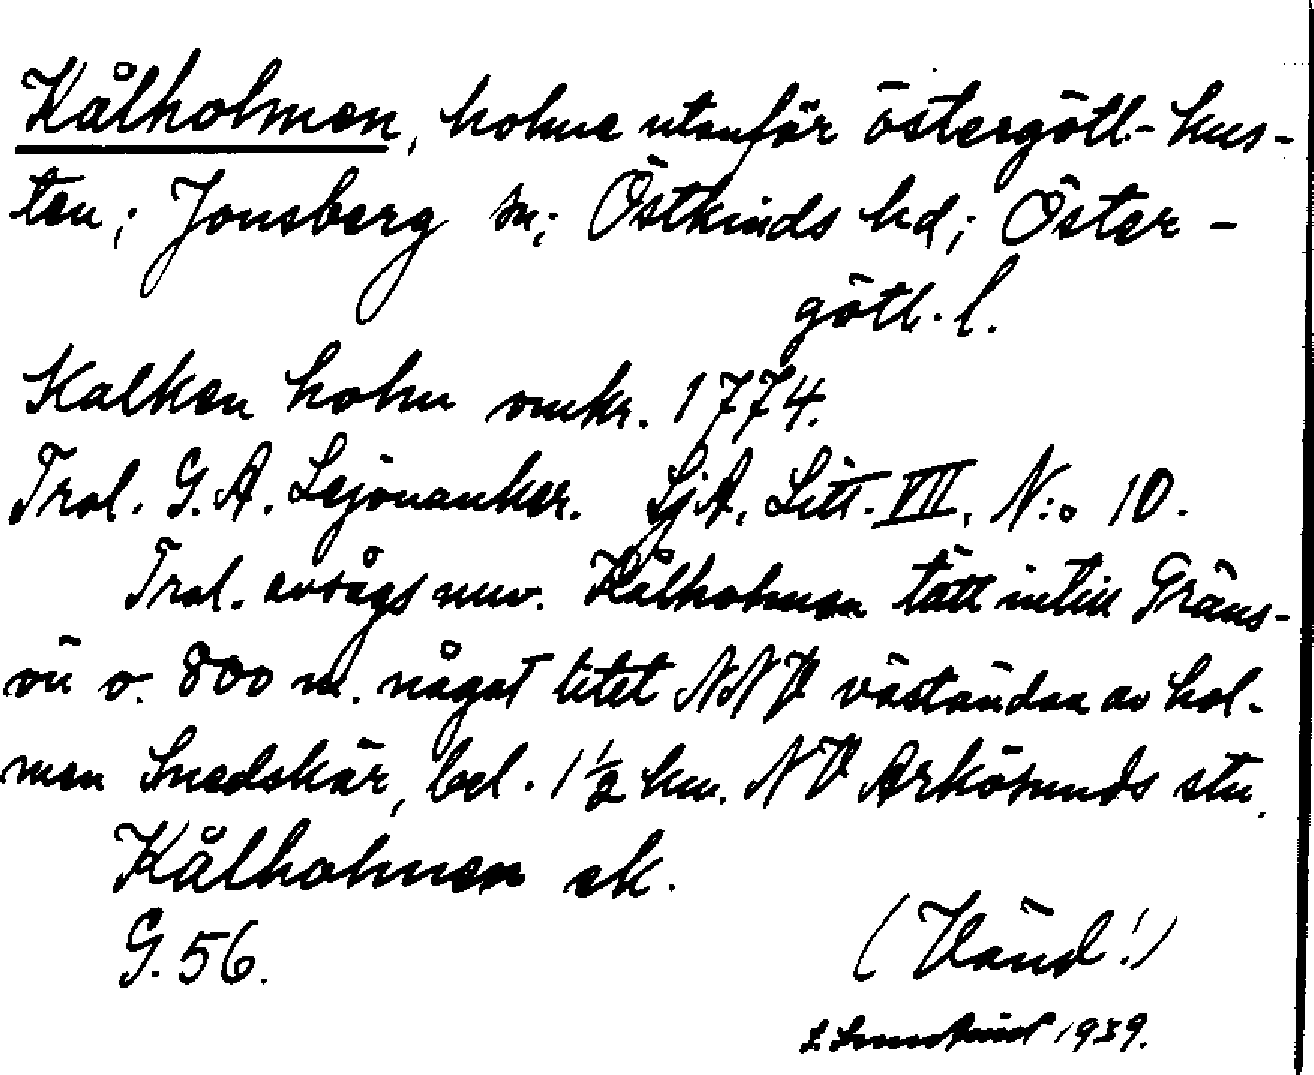 Kålholmen, holme utanför östergötl. kus-
ten; Jonsberg sn; Östkinds hd; Öster-
götl. l.
Kalken holm omkr. 1774.
Trol. G. A. Lejonanker. SjA. Litt. VIII. N:o 10.
Trol. avsågs nuv. Kålholmen tätt intill Gräns-
ön o. 800 m. något litet NNV väständan av hol-
men Snedskär, bel. 1½ km. NV Arkösunds stn.
Kålholmen ek.
G. 56.
(Vänd!)
1939.